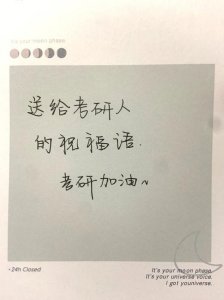 It's your moon phase
送给考研人
的祝福语.
考研加油~
• 24h Closed
It's your moon phase.
It's your universe voice.
I got youniverse.